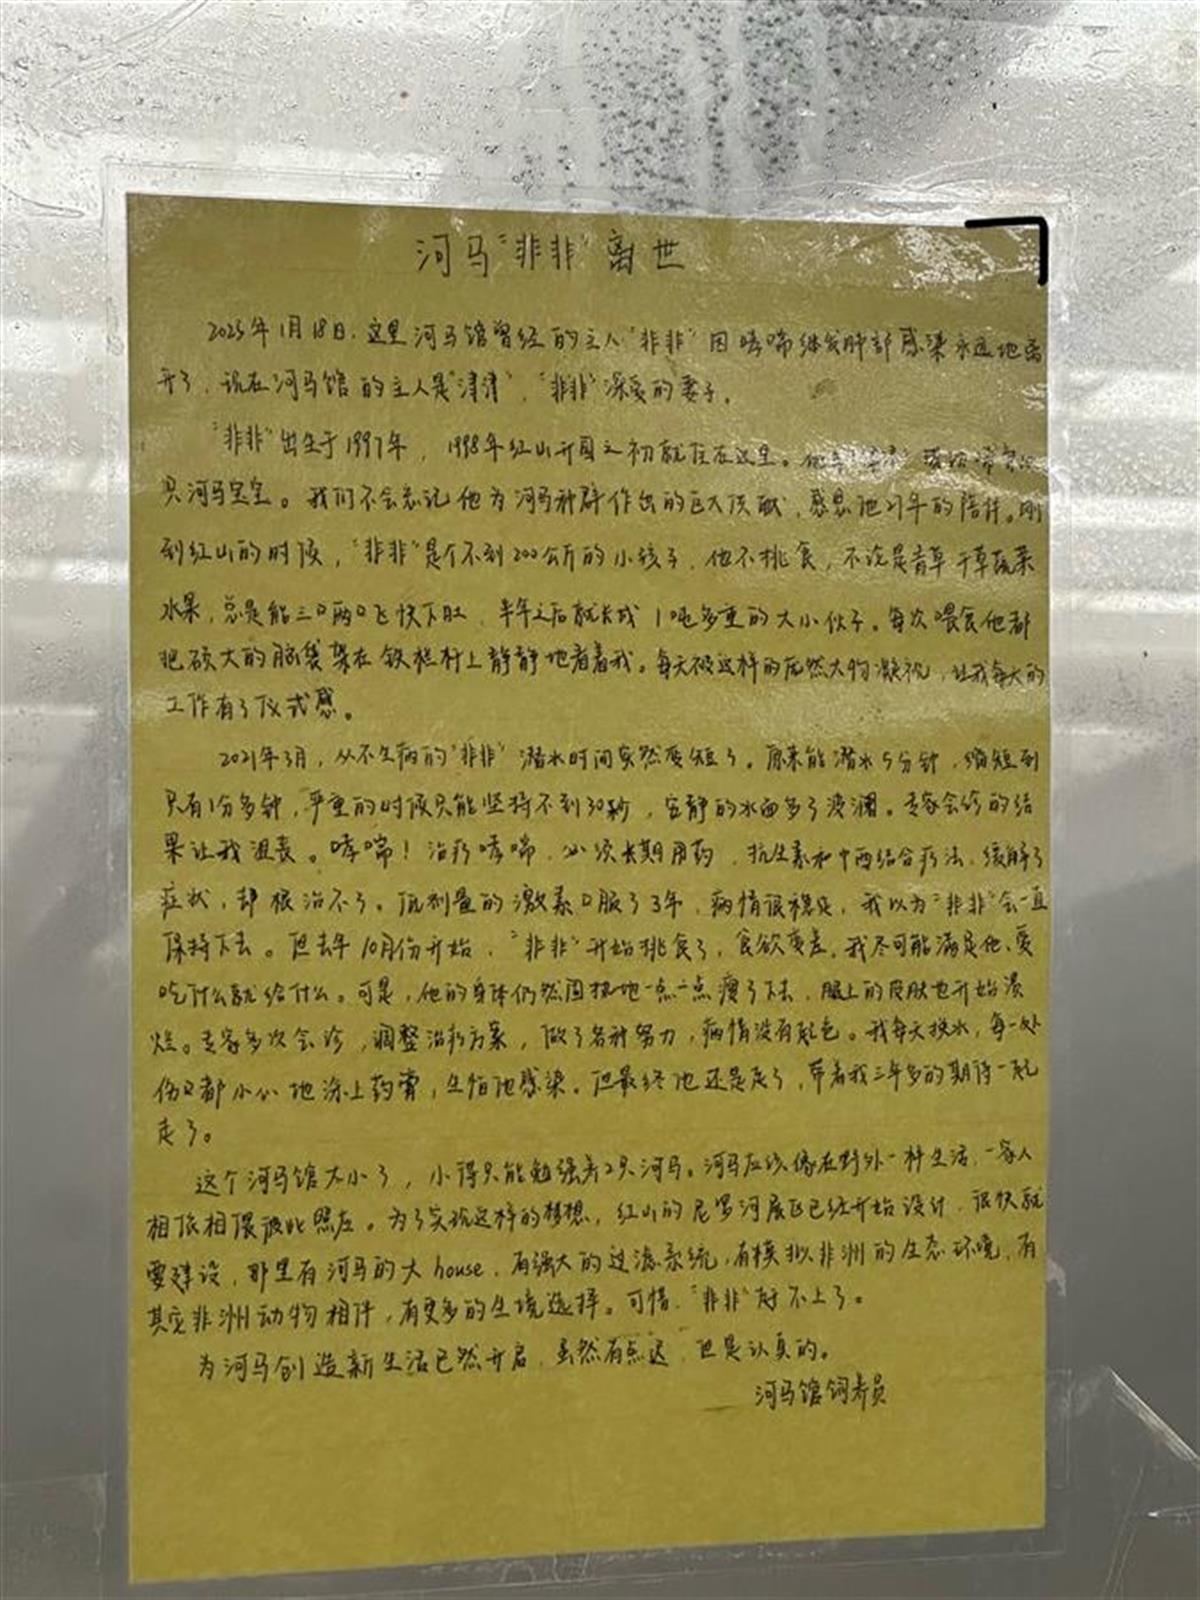 河马“非非”离世
2025年1月18日，这里河马馆曾经的主人“非非”因哮喘继发肺部感染永远地离
开了，现在河马馆的主人是“津津”，“非非”深爱的妻子。
“非非”出生于1997年，1998年红山开园之初就住在这里。他
只河马宝宝。我们不会忘记他为河马种群作出的巨大贡献，感恩他27年的陪伴。刚
到红山的时候，“非非”是个不到200公斤的小孩子，他不挑食，不论是青草干草蔬菜
水果，总是能三口两口飞快下肚，半年之后就长成1吨多重的大小伙子。每次喂食他都
把硕大的脑袋架在铁栏杆上静静地看着我。每天被这样的庞然大物凝视，让我每天的
工作有了仪式感。
2021年3月，从不生病的“非非”潜水时间突然变短了。原来能潜水5分钟，缩短到
只有1分多钟，严重的时候只能坚持不到30秒，安静的水面多了波澜。专家会诊的结
果让我沮丧。哮喘！治疗哮喘，必须长期用药，抗生素和中西结合疗法，缓解了
症状，却根治不了。低剂量的激素口服了3年，病情很稳定，我以为“非非”会一直
保持下去。但去年10月份开始，“非非”开始挑食了，食欲变差，我尽可能满足他，爱
吃什么就给什么。可是，他的身体仍然固执地一点一点瘦了下去，腿上的皮肤也开始溃
烂。专家多次会诊，调整治疗方案，做了各种努力，病情没有起色。我每天换水，每一处
伤口都小心地涂上药膏，生怕他感染。但最终他还是走了，带着我三年多的期待一起
走了。
这个河马馆太小了，小得只能勉强养2只河马。河马应该像在野外一种生活，一家人
相依相偎彼此照应。为了实现这样的梦想，红山的尼罗河展区已经开始设计，很快就
要建设，那里有河马的大house，有强大的过滤系统，有模拟非洲的生态环境，有
其它非洲动物相伴，有更多的生境选择。可惜，“非非”赶不上了。
为河马创造新生活已然开启，虽然有点迟，但是认真的。
河马馆饲养员